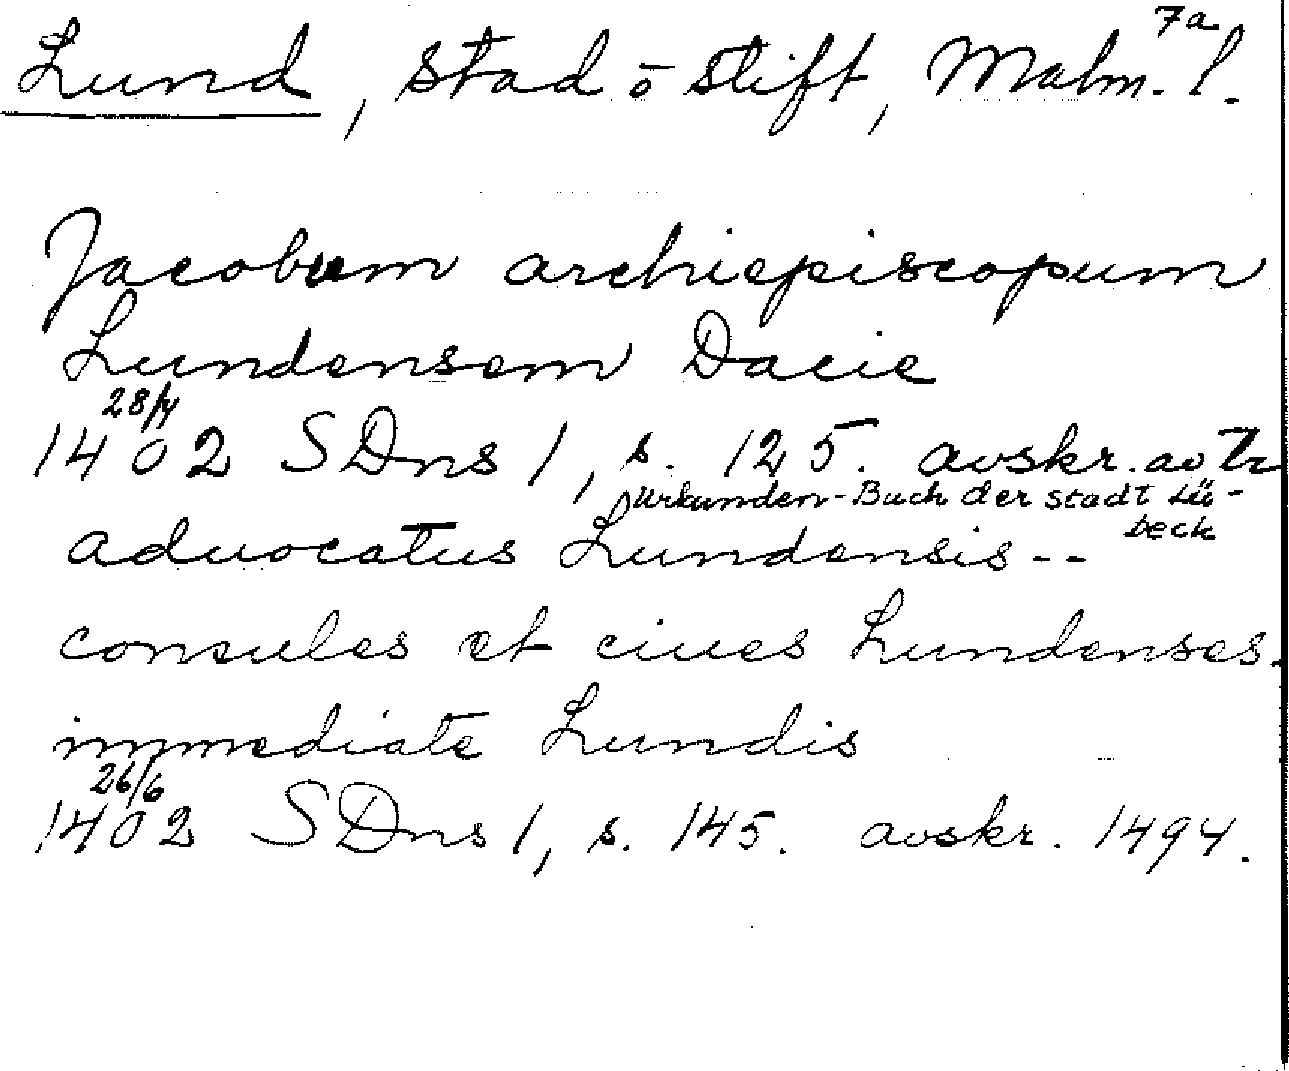 7a
Lund, stad ō stift, Malm. l.
Jacobum archiepiscopum
Lundensem Dacie
28/4
1402 SDns 1, s. 125. avskr. av Tr
Urkunden-Buch der Stadt Lü-
beck
aduocatus Lundensis --
consules et ciues Lundenses.
immediate Lundis
26/6
1402 SDns 1, s. 145. avskr. 1494.